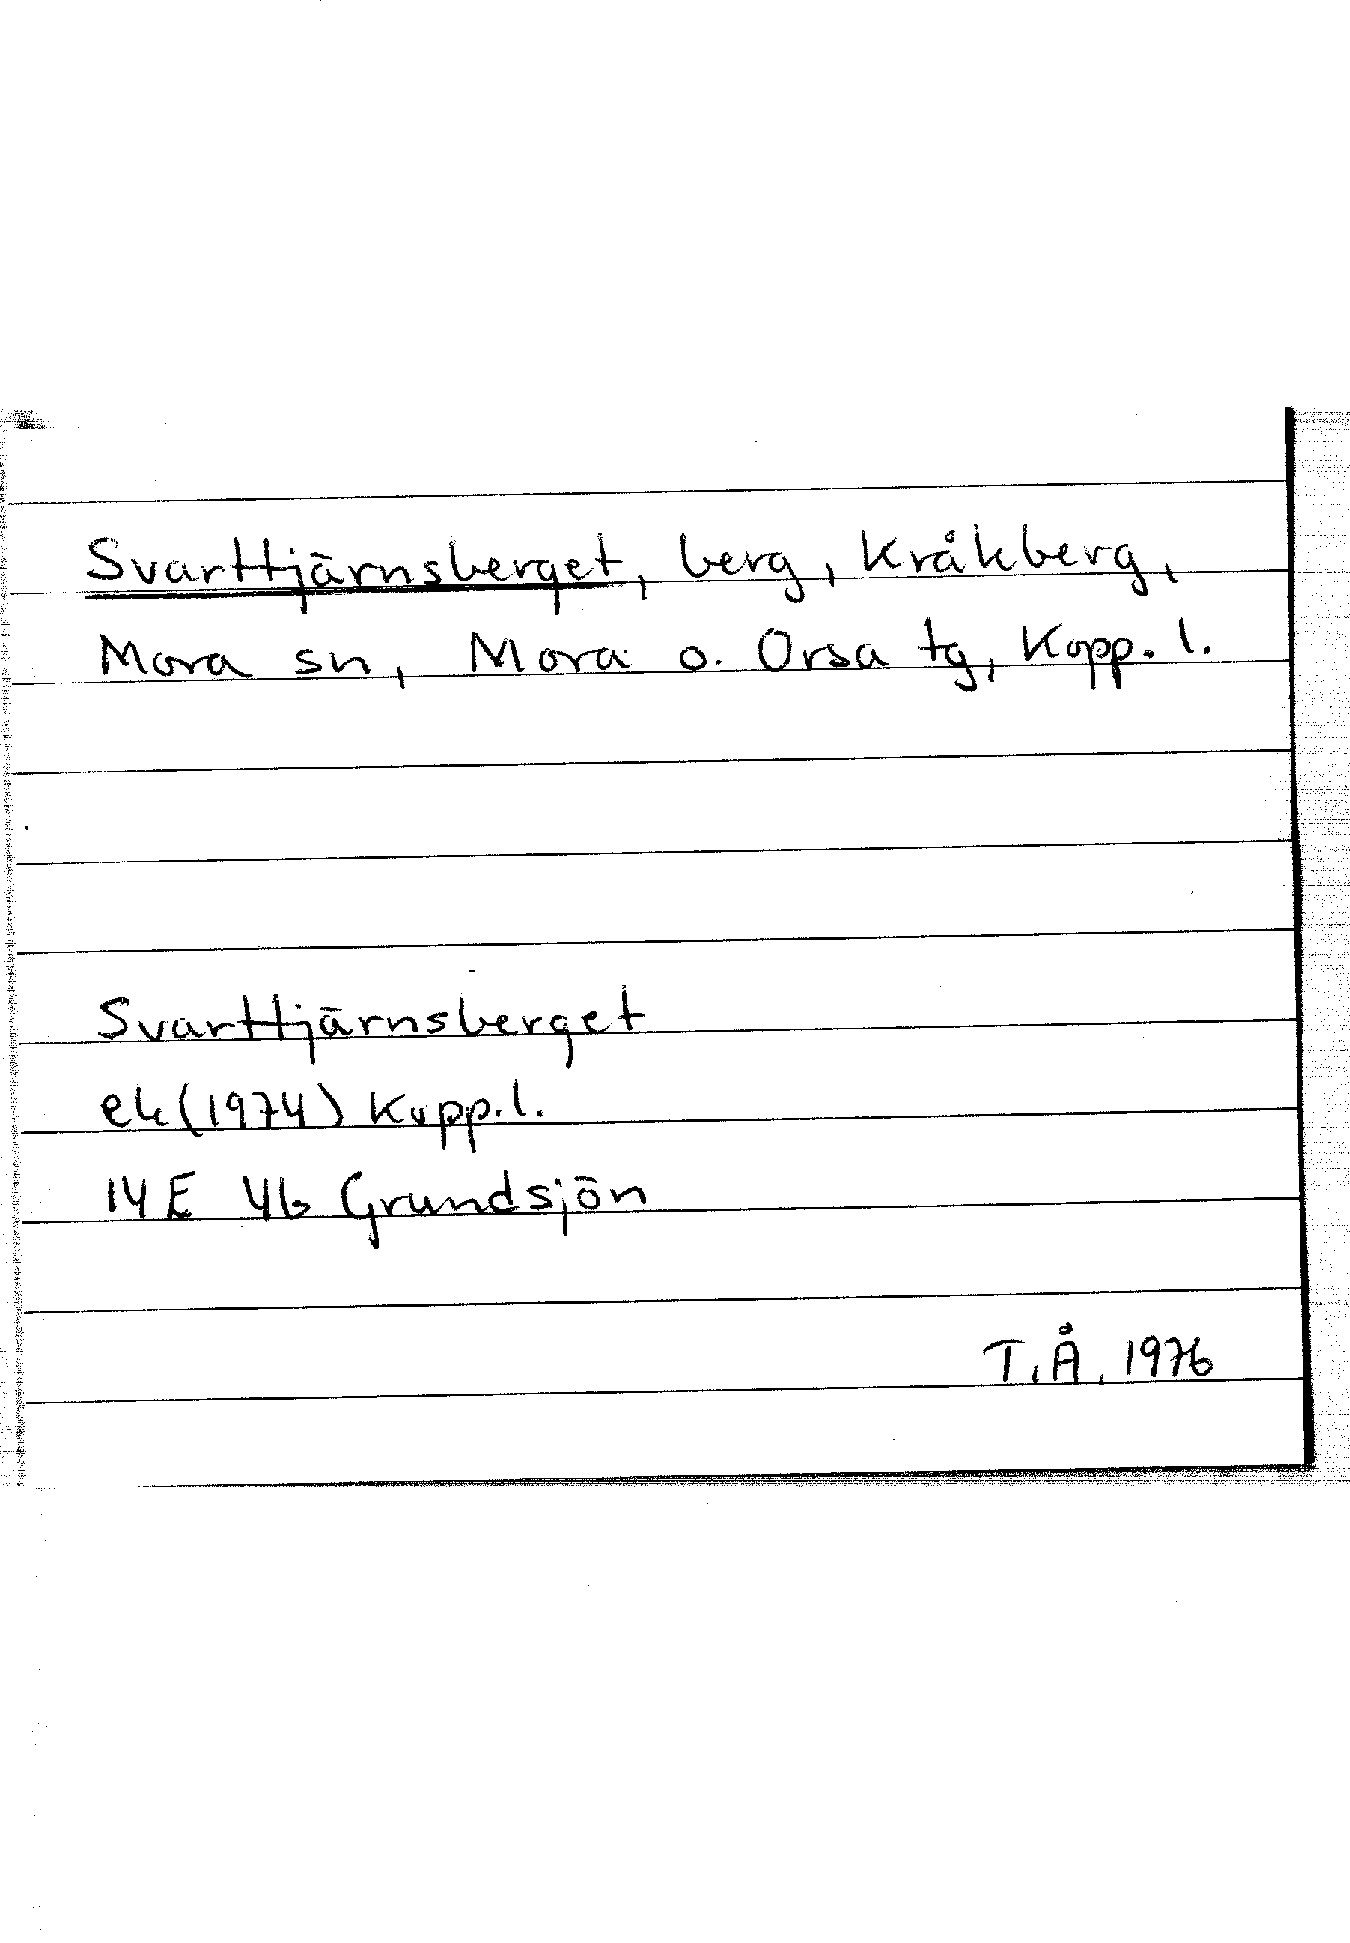 Svarttjärnsberget, berg, Kråkberg,
Mora sn, Mora o. Orsa tg, Kopp. l.
Svarttjärnsberget
ek (1974) Kopp. l.
14 E 4b Grundsjön
T.Å. 1976